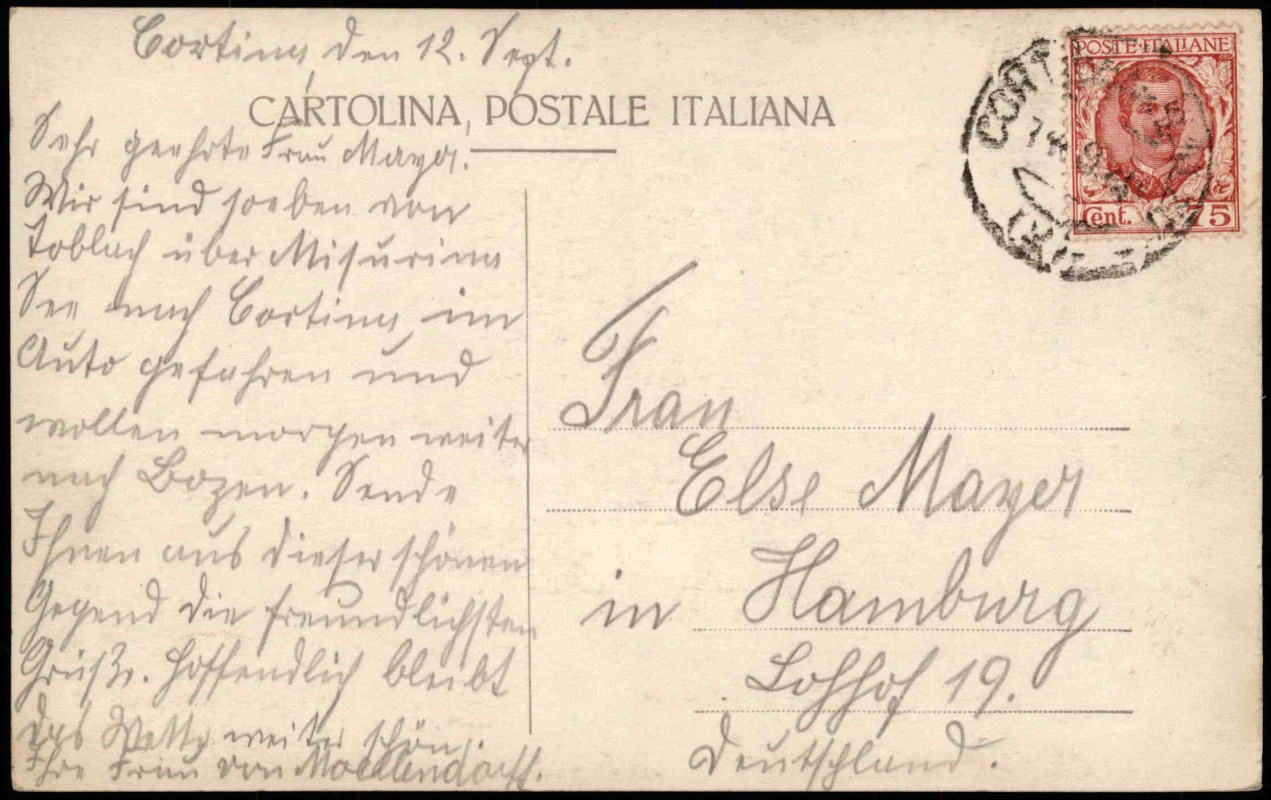 Cortina, den 12. Sept.
CARTOLINA POSTALE ITALIANA
Sehr geehrte Frau Mayer.
Wir sind soeben von
Toblach über Misurina
See nach Cortina im
Auto gefahren und
wollen morgen weiter
nach Bozen. Sende
Ihnen aus dieser schönen
Gegend die freundlichsten
Grüße. Hoffendlich bleibt
das Wetter weiter schön.
Ihre Frau von
POSTE·ITALIANE
Cent. 75
Frau
Else Mayer
in Hamburg
Lohhof 19.
Deutschland.